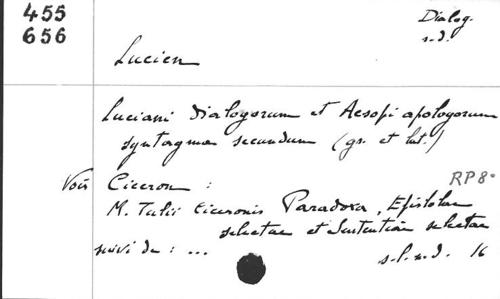 455
656
Dialog.
s.d.
Lucien
Luciani Dialogorum et Aesopi apologorum
syntagma secundum (gr. et lat.)
RP 8°
Voir Ciceron :
M. Tulii Ciceronis Paradoxa, Epistolae
selectae et Sententiae selectae
suivi de : ...
s.l.n.d. 16